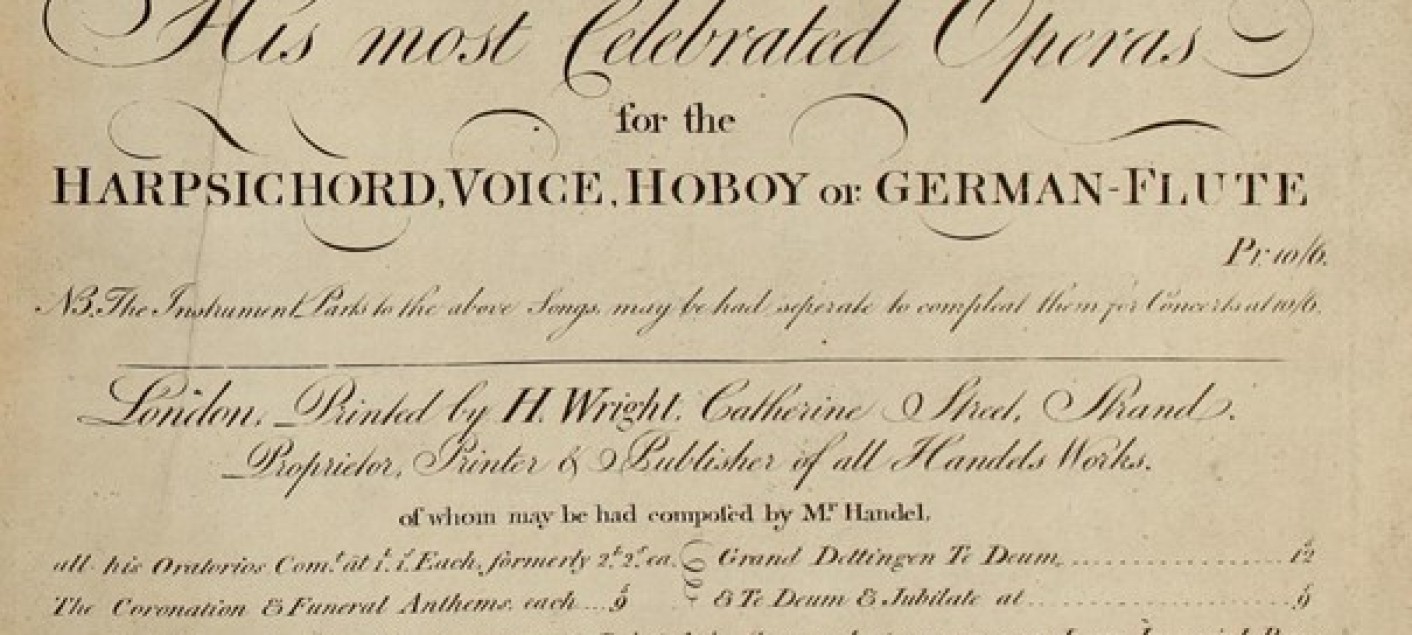 His most Celebrated Operas
for the
HARPSICHORD, VOICE, HOBOY or GERMAN-FLUTE
Pr. 10/6.
NB. The Instrument. Parts to the above Songs, may be had seperate to compleat them for Concerts at 10/6.
London, Printed by H. Wright, Catherine Street, Strand.
Proprietor, Printer & Publisher of all Handels Works.
of whom may be had composed by Mr. Handel,
all his Oratorios Comt. at 1.1s. Each, formerly 2.2s. ea.
The Coronation & Funeral Anthems, each...9s
Grand Dettingen Te Deum,..................12s
& Te Deum & Jubilate at......................9s